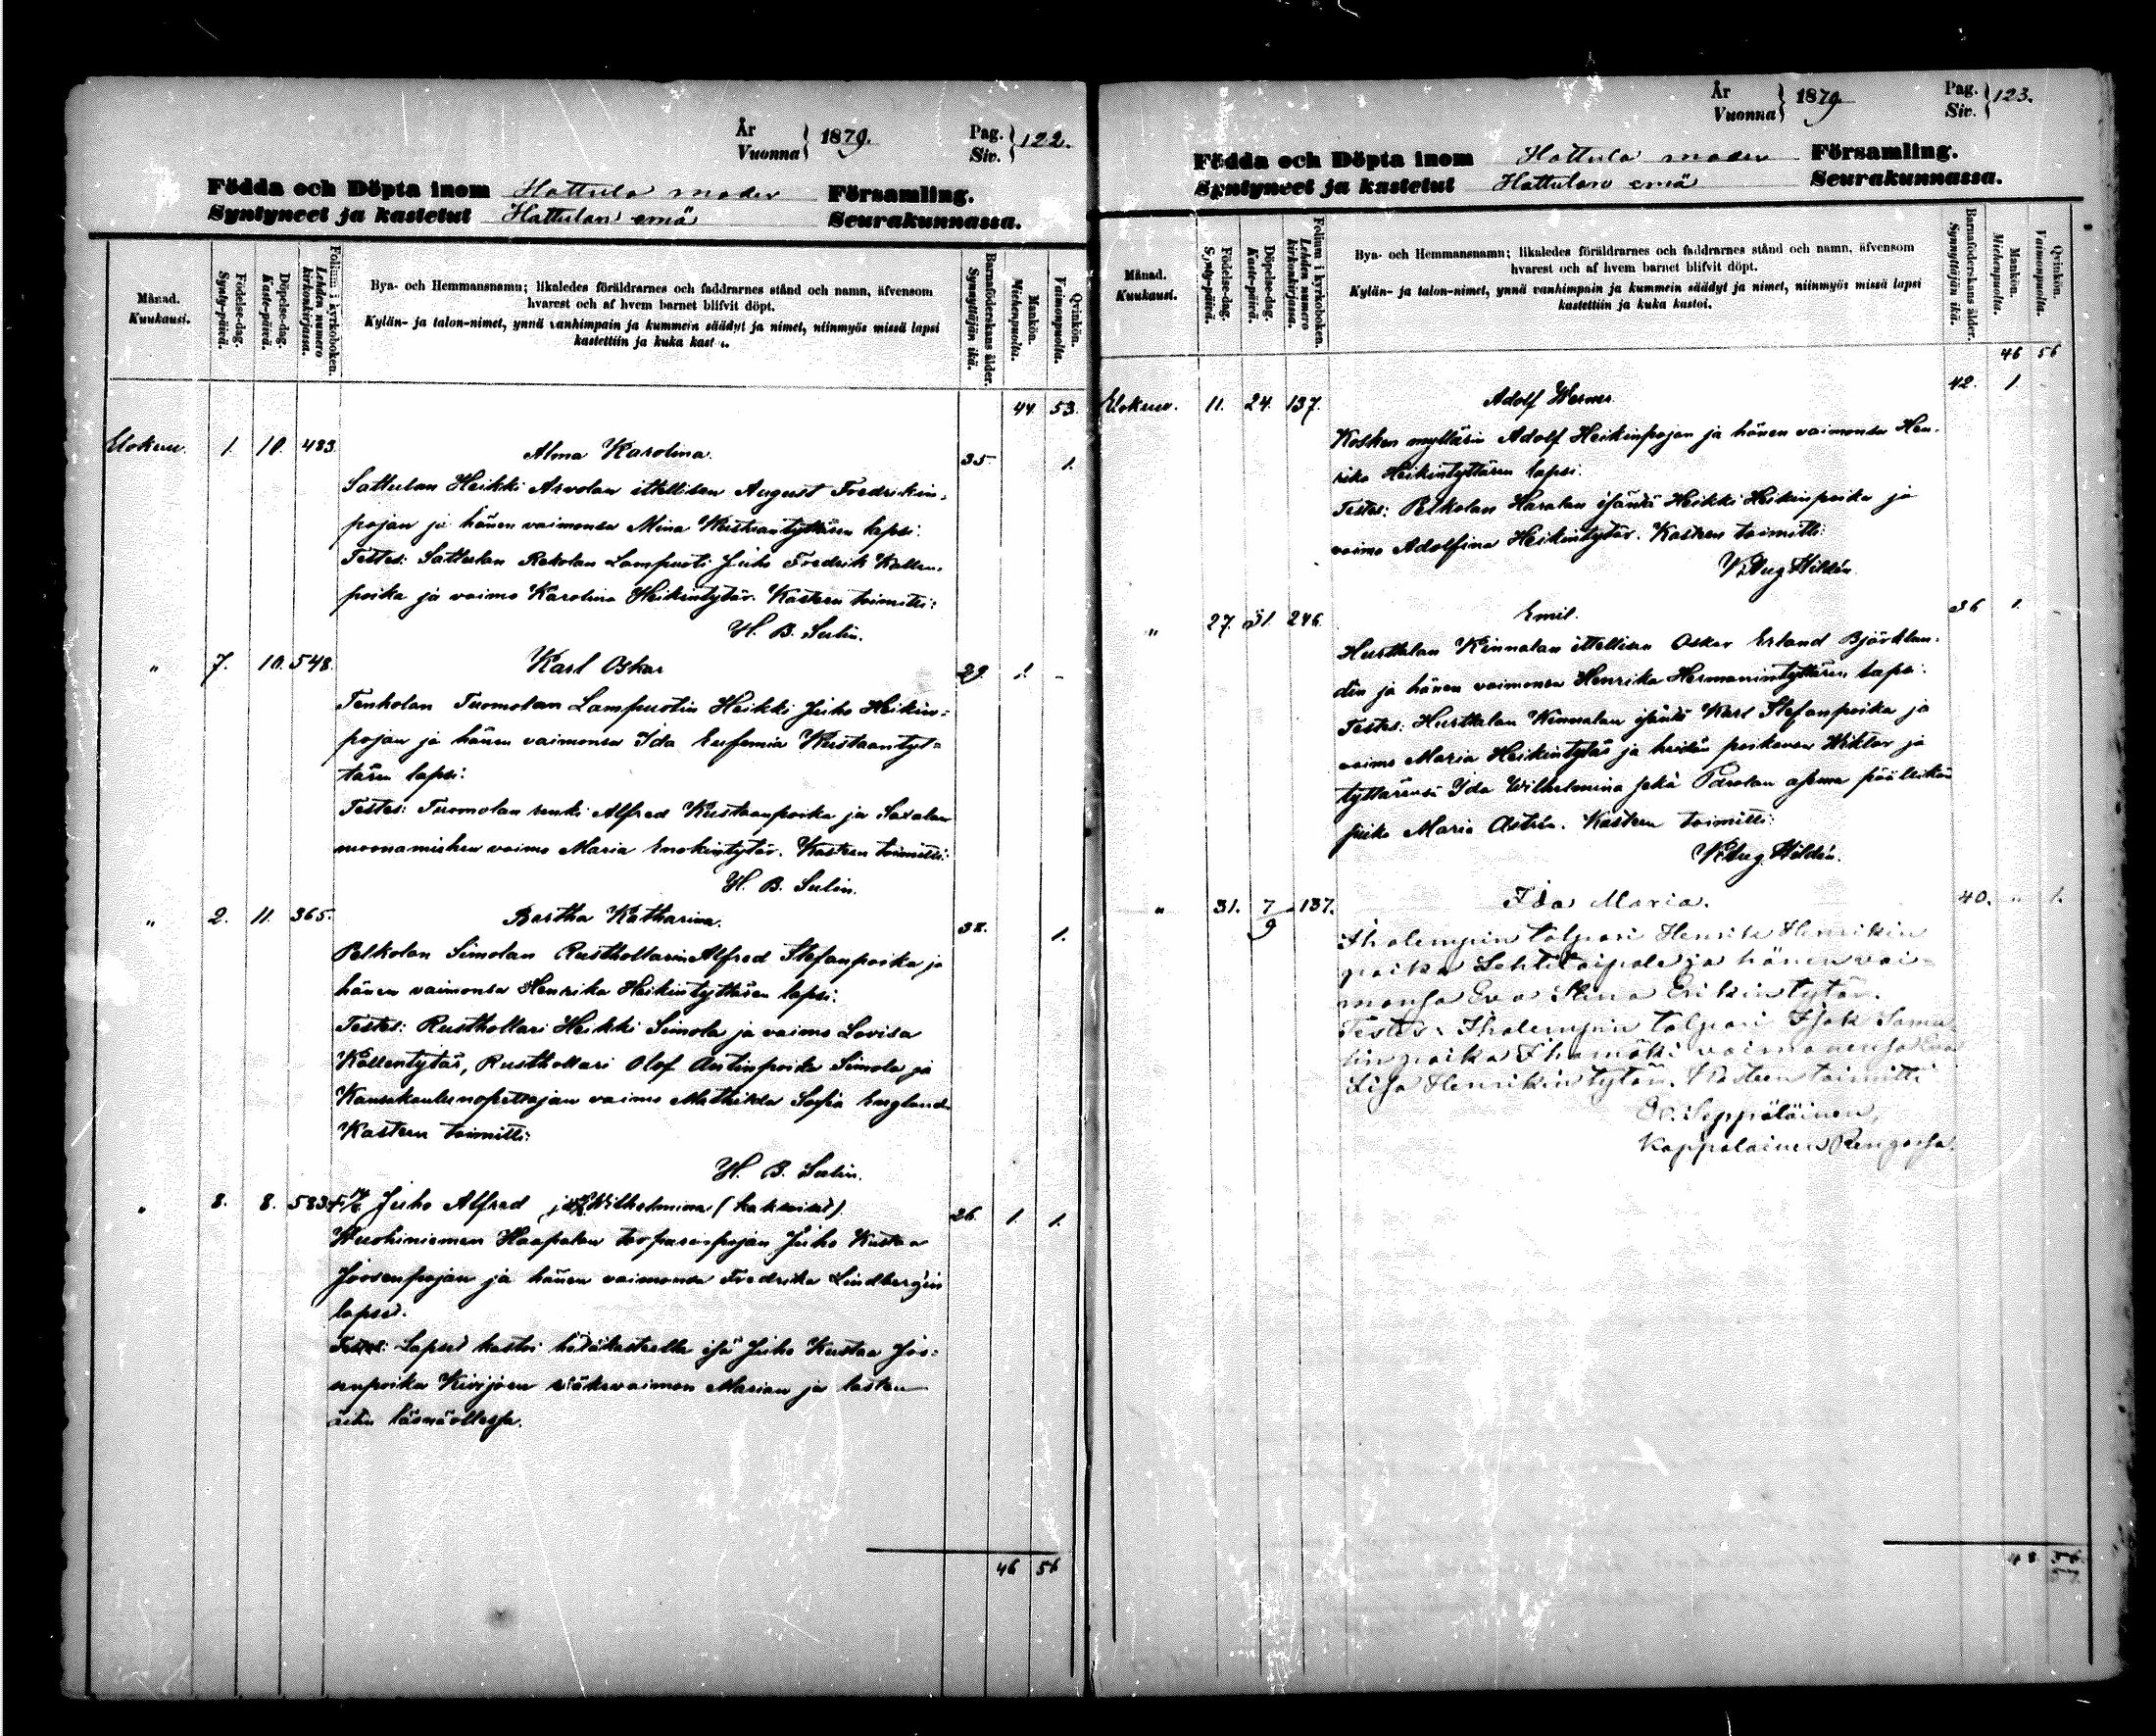 År
Vuonna } 1879.
Pag.
Siv. } 122.
Födda och Döpta inom Hattula moder Församling.
Syntyneet ja kastetut Hattulan emä Seurakunnassa.
Månad.
Kuukausi.
Födelse-dag.
Synty-päivä.
Döpelse-dag.
Kaste-päivä.
Folium i kyrkoboken.
Lehden numero kirkonkirjassa.
Bya- och Hemmansnamn; likaledes föräldrarnes och faddrarnes stånd och namn, äfvensom
hvarest och af hvem barnet blifvit döpt.
Kylän- ja talon-nimet, ynnä vanhimpain ja kummein säädyt ja nimet, niinmyös missä lapsi
kastettiin ja kuka kast
Barnaföderskans ålder.
Synnyttäjän ikä.
Mankön.
Miehenpuolta.
Qvinkön.
Vaimonpuolta.
44. 53.
Elokuu. 1. 10. 483. Alma Karolina. 35. 1.
Sattulan Heikki Arvolan ittellisen August Fredrikin-
pojan ja hänen vaimonsa Mina Kustaantyttären lapsi.
Testes: Sattulan Rekolan Lampuoti Juho Fredrik Kallen-
poika ja vaimo Karolina Heikintytär. Kasteen toimitti:
H. B. Salin.
" 7. 10. 548. Karl Oskar 29. 1. -
Tenholan Tuomolan Lampuotin Heikki Juho Heikin-
pojan ja hänen vaimonsa Ida Eufemia Kustaantyt-
tären lapsi:
Testes: Tuomolan renki Alfred Kustaanpoika ja Saxalan
muonamiehen vaimo Maria Enokintytär. Kasteen toimitti:
H. B. Salin.
" 2. 11. 365. Bertha Katharina. 38. 1.
Pelkolan Simolan Rusthollarin Alfred Stefanpoika ja
hänen vaimonsa Henrika Heikintyttären lapsi.
Testes: Rusthollari Heikki Simola ja vaimo Lovisa
Kallentytär, Rusthollari Olof Antinpoika Simola ja
Kansakoulunopettajan vaimo Mathilda Sofia Englund.
Kasteen toimitti:
H. B. Salin.
" 8. 8. 583. Juho Alfred ja Wilhelmina (kaksoiset). 26. 1. 1.
Wuohiniemen Haapalan torparinpojan Juho Kustaa
Joosenpojan ja hänen vaimonsa Fredrika Lindberg'in
lapset.
Testes: Lapset kastoi hätäkasteella isä Juho Kustaa Joo-
senpoika Kivijoen väkevaimon Marian ja lasten
äitin läsnäollessa.
46 56
År
Vuonna } 1879
Pag.
Siv. } 123.
Födda och Döpta inom Hattula moder Församling.
Syntyneet ja kastetut Hattulan emä Seurakunnassa.
Månad.
Kuukausi.
Födelse-dag.
Synty-päivä.
Döpelse-dag.
Kaste-päivä.
Folium i kyrkoboken.
Lehden numero kirkonkirjassa.
Bya- och Hemmansnamn; likaledes föräldrarnes och faddrarnes stånd och namn, äfvensom
hvarest och af hvem barnet blifvit döpt.
Kylän- ja talon-nimet, ynnä vanhimpain ja kummein säädyt ja nimet, niinmyös missä lapsi
kastettiin ja kuka kastoi.
Barnaföderskans ålder.
Synnyttäjän ikä.
Mankön.
Miehenpuolta.
Qvinkön.
Vaimonpuolta.
46 56
Elokuu. 11. 24. 137. Adolf Werner 42. 1. -
Kosken myllärin Adolf Heikinpojan ja hänen vaimonsa Hen-
rika Heikintyttären lapsi.
Testes: Pelkolan Haralan isäntä Heikki Heikinpoika ja
vaimo Adolfina Heikintytär. Kasteen toimitti:
K. Aug. Hildén.
" 27. 31. 246. Emil. 36 1. -
Hurttalan Kinnalan ittellisen Oskar Erland Björklun-
din ja hänen vaimonsa Henrika Hermanintyttären lapsi.
Testes: Hurttalan Kinnalan isäntä Karl Stefanpoika ja
vaimo Maria Heikintytär ja heidän poikansa Wiktor ja
tyttärensä Ida Wilhelmina sekä Parolan päällikön
piika Maria Astrén. Kasteen toimitti:
K. Aug. Hildén.
" 31. 7/9 137. Ida Maria. 40. " 1.
Ihalempin torpari Henrik Henrikin
poika Lehtitaipale ja hänen vai-
monsa Eva Stina Erikintytär.
Testes: Ihalempin torpari Isak Samu-
linpoika Ihamäki vaimonensa Eva
Lisa Henrikintytär. Kasteen toimitti
O. Seppäläinen,
Kappalainen Rengossa.
48 56
57